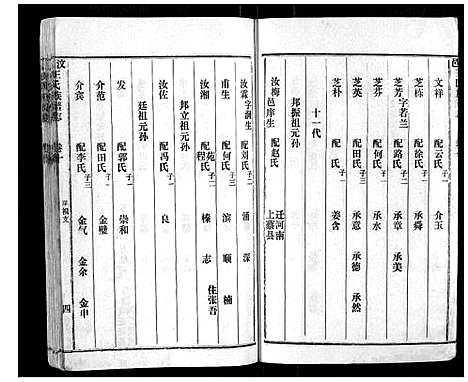 文祥　配云氏 子一　介玉
芝栋　配徐氏 子一　承舜
芝芳 字若兰　配路氏 子二　承章　承美
芝芬　配何氏 子一　承水
芝英　配田氏 子三　承意　承德　承然
芝朴　配　氏 子一　姜含
十一代
邦振祖元孙
汝梅 邑庠生　配赵氏　迁河南上蔡县
汝霖 字润生　配刘氏 子二　涌　深
甫生　配何氏 子三　滨　顺　楠
汝湘　配苑氏程氏 子二　榛　志　住张吾
邦立祖元孙
汝佐　配冯氏 子一　良
廷祖元孙
发　配郭氏 子一　崇和
介范　配田氏 子一　金璧
介宾　配李氏 子三　金气　金余　金申
汶上王氏族谱志
卷
四